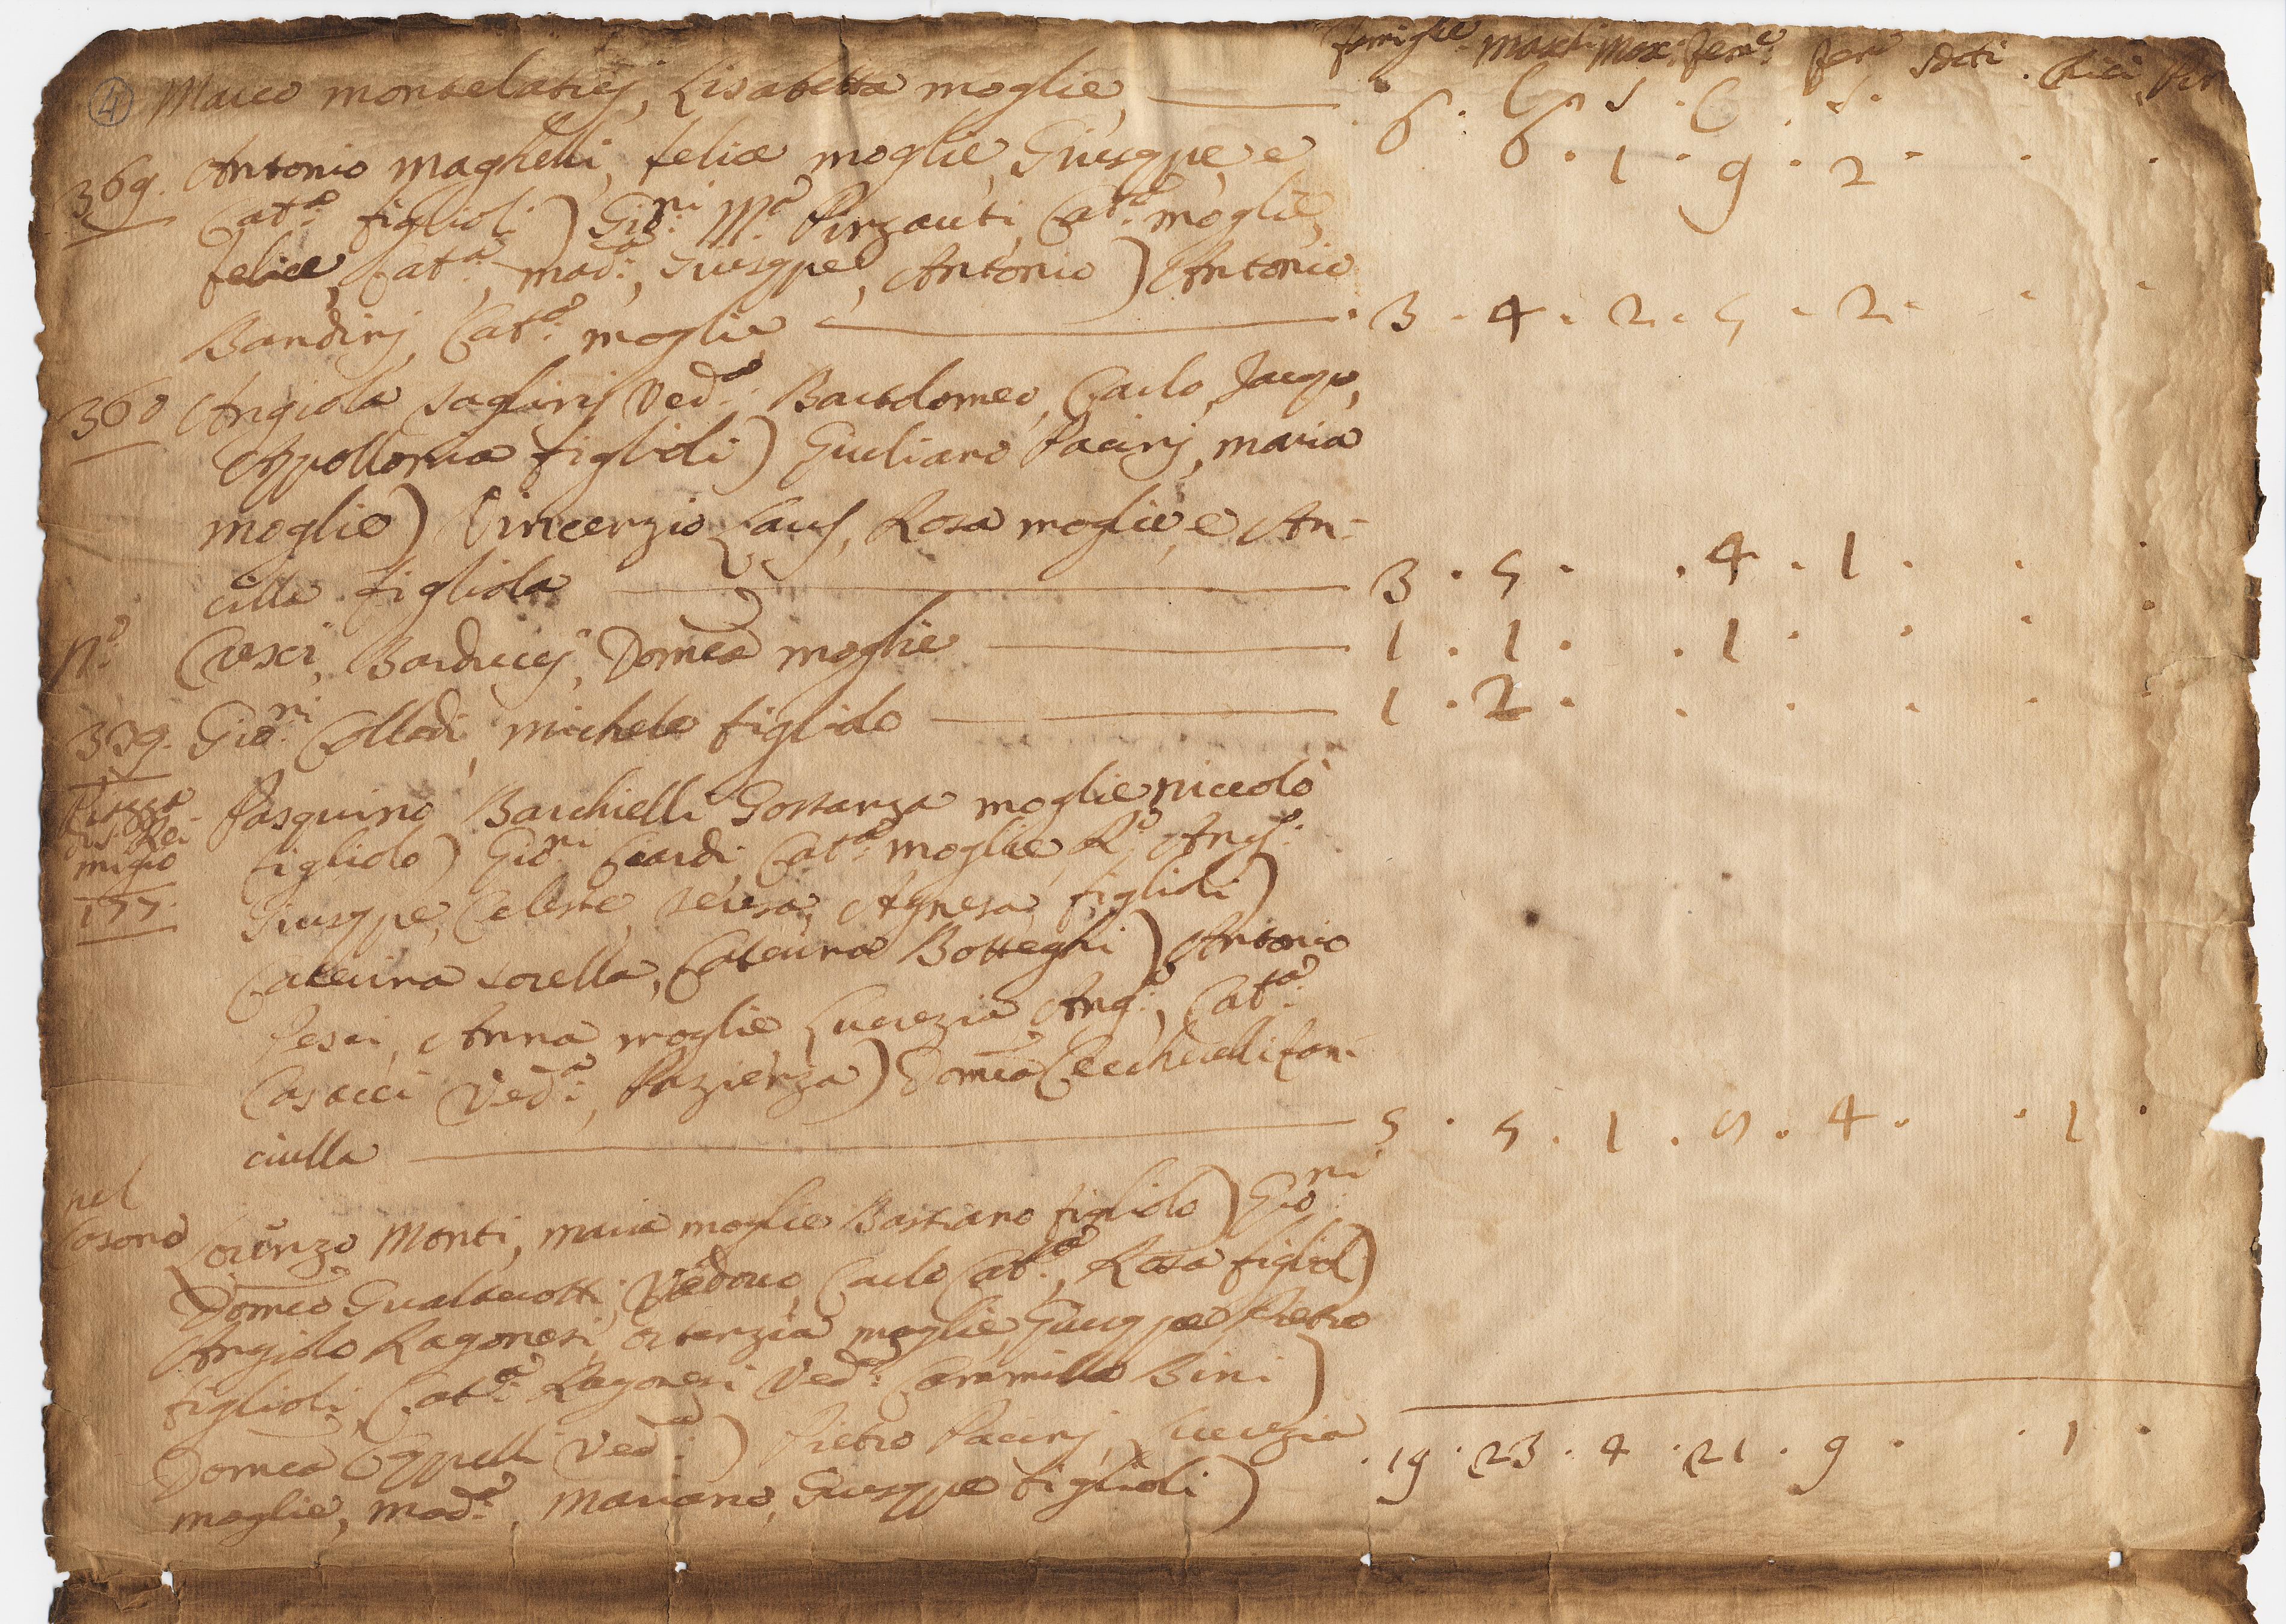 famiglie maschi Mas: fem:e fem:e Sdoti . Chici
④ Marco montelaticj, Lisabetta moglie, 6 . 6 . 1 . 9 . 2 . . .
369. Antonio Maghelli, felice moglie, Giusppe, e
Cat:a figlioli ) Gio:ni M:a Pinzauti, Cat:a moglie,
felice, Cat:a, mad:a, Giusppe, Antonio ) Antonio
Bandinj, Cat:a moglie . 3 . 4 . 2 . 5 . 2 . . .
360 Angiola Ved:a Bartolomeo, Carlo, Jacopo,
Appollonia figlioli ) Giuliano Pacinj, maria
moglie ) Vincenzio Laurj, Rosa moglie, e An=
cilla figliola 3 . 5 . . 4 . 1 . . .
N:o Cresci, Barduccj, Domca moglie 1 . 1 . . 1 . . . .
339. Gio:ni Collodi, michele figliolo 1 . 2 . . . . . .
Piazza Pasquino Barchielli Gostanza moglie niccolò
di S. Rei
migio figliolo ) Gio:ni Ciardi, Cat:a moglie, R:o
177. Giusppe, Celeste, Teresa, Agnesa figlioli )
Caterina sorella, Caterina Botteghi ) Antonio
Pesci, Anna moglie, Lucrezia Ang:a, Cat:a
Casacci Ved:a, Pazienza ) Domca Cecherelli fan:
ciulla 5 . 5 . 1 . 9 . 4 . . 1 .
nel
Casone Lorenzo Monti, maria moglie Bastiano figliolo ) Gio:ni
Domco Gualterotti Vedouo, Carlo Cat:a, Rosa figliol )
Angiolo Ragonesi, ortenzia moglie, Giusppe Pietro
figlioli, Cat:a Ragonesi Ved:a Cammilla Bini )
Domca Cappelli Ved:a ) Pietro Pacinj, Lucrezia
moglie, mad:a, Mariano, Giusppe figlioli ) . 19 . 23 . 4 . 21 . 9 . . 1 .